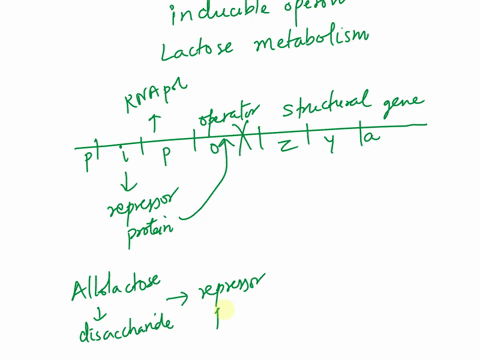 inducible operon
Lactose metabolism
RNA pol
operator
structural gene
p i p o z y a
repressor
protein
Allolactose
repressor
disaccharide